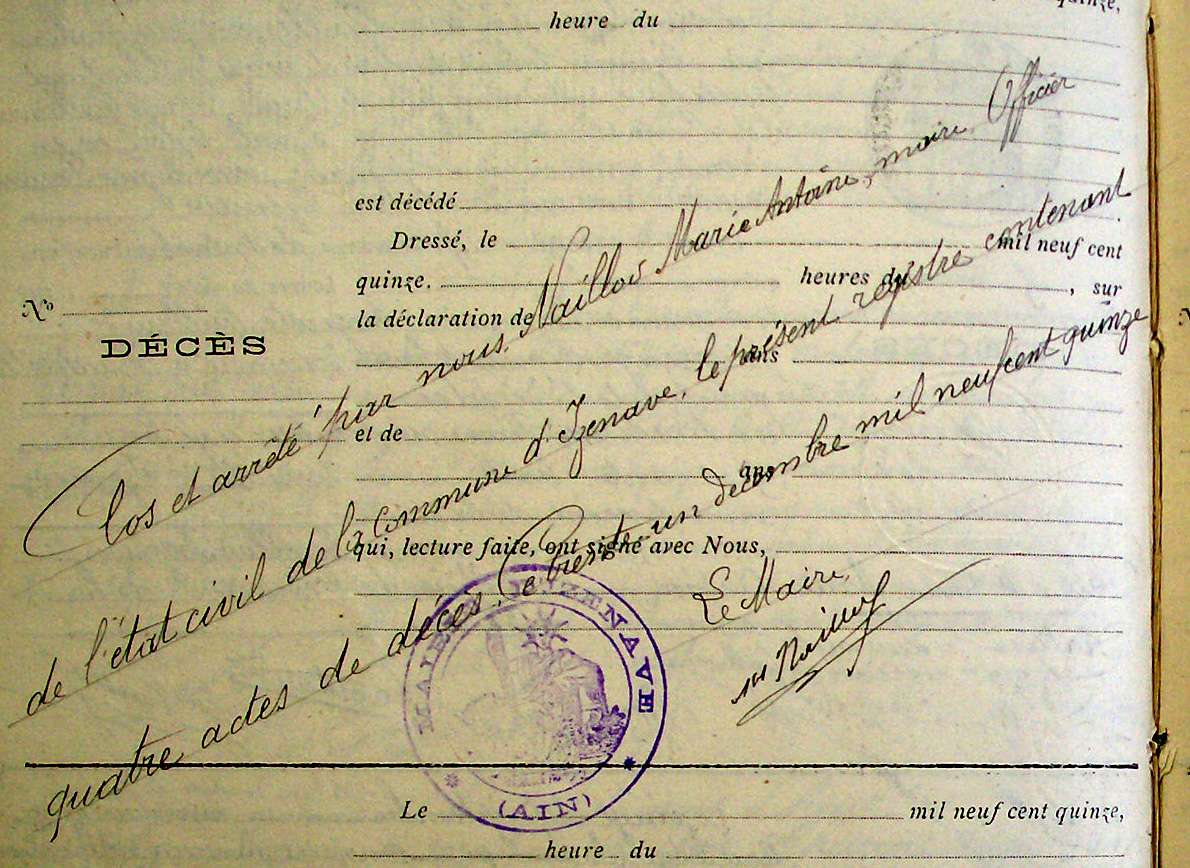 quinze,
heure du
est décédé
Dressé, le mil neuf cent
quinze. heures du , sur
la déclaration de
ans
et de
ans
qui, lecture faite, ont signé avec Nous,
No
DÉCÈS
Clos et arrêté par nous, Naillod Marie Antoine, maire, Officier
de l'état civil de la commune d'Izenave, le présent registre contenant
quatre actes de décès. Ce trente un décembre mil neuf cent quinze
Le Maire,
MAIRIE D'IZENAVE
(AIN)
Le mil neuf cent quinze,
heure du